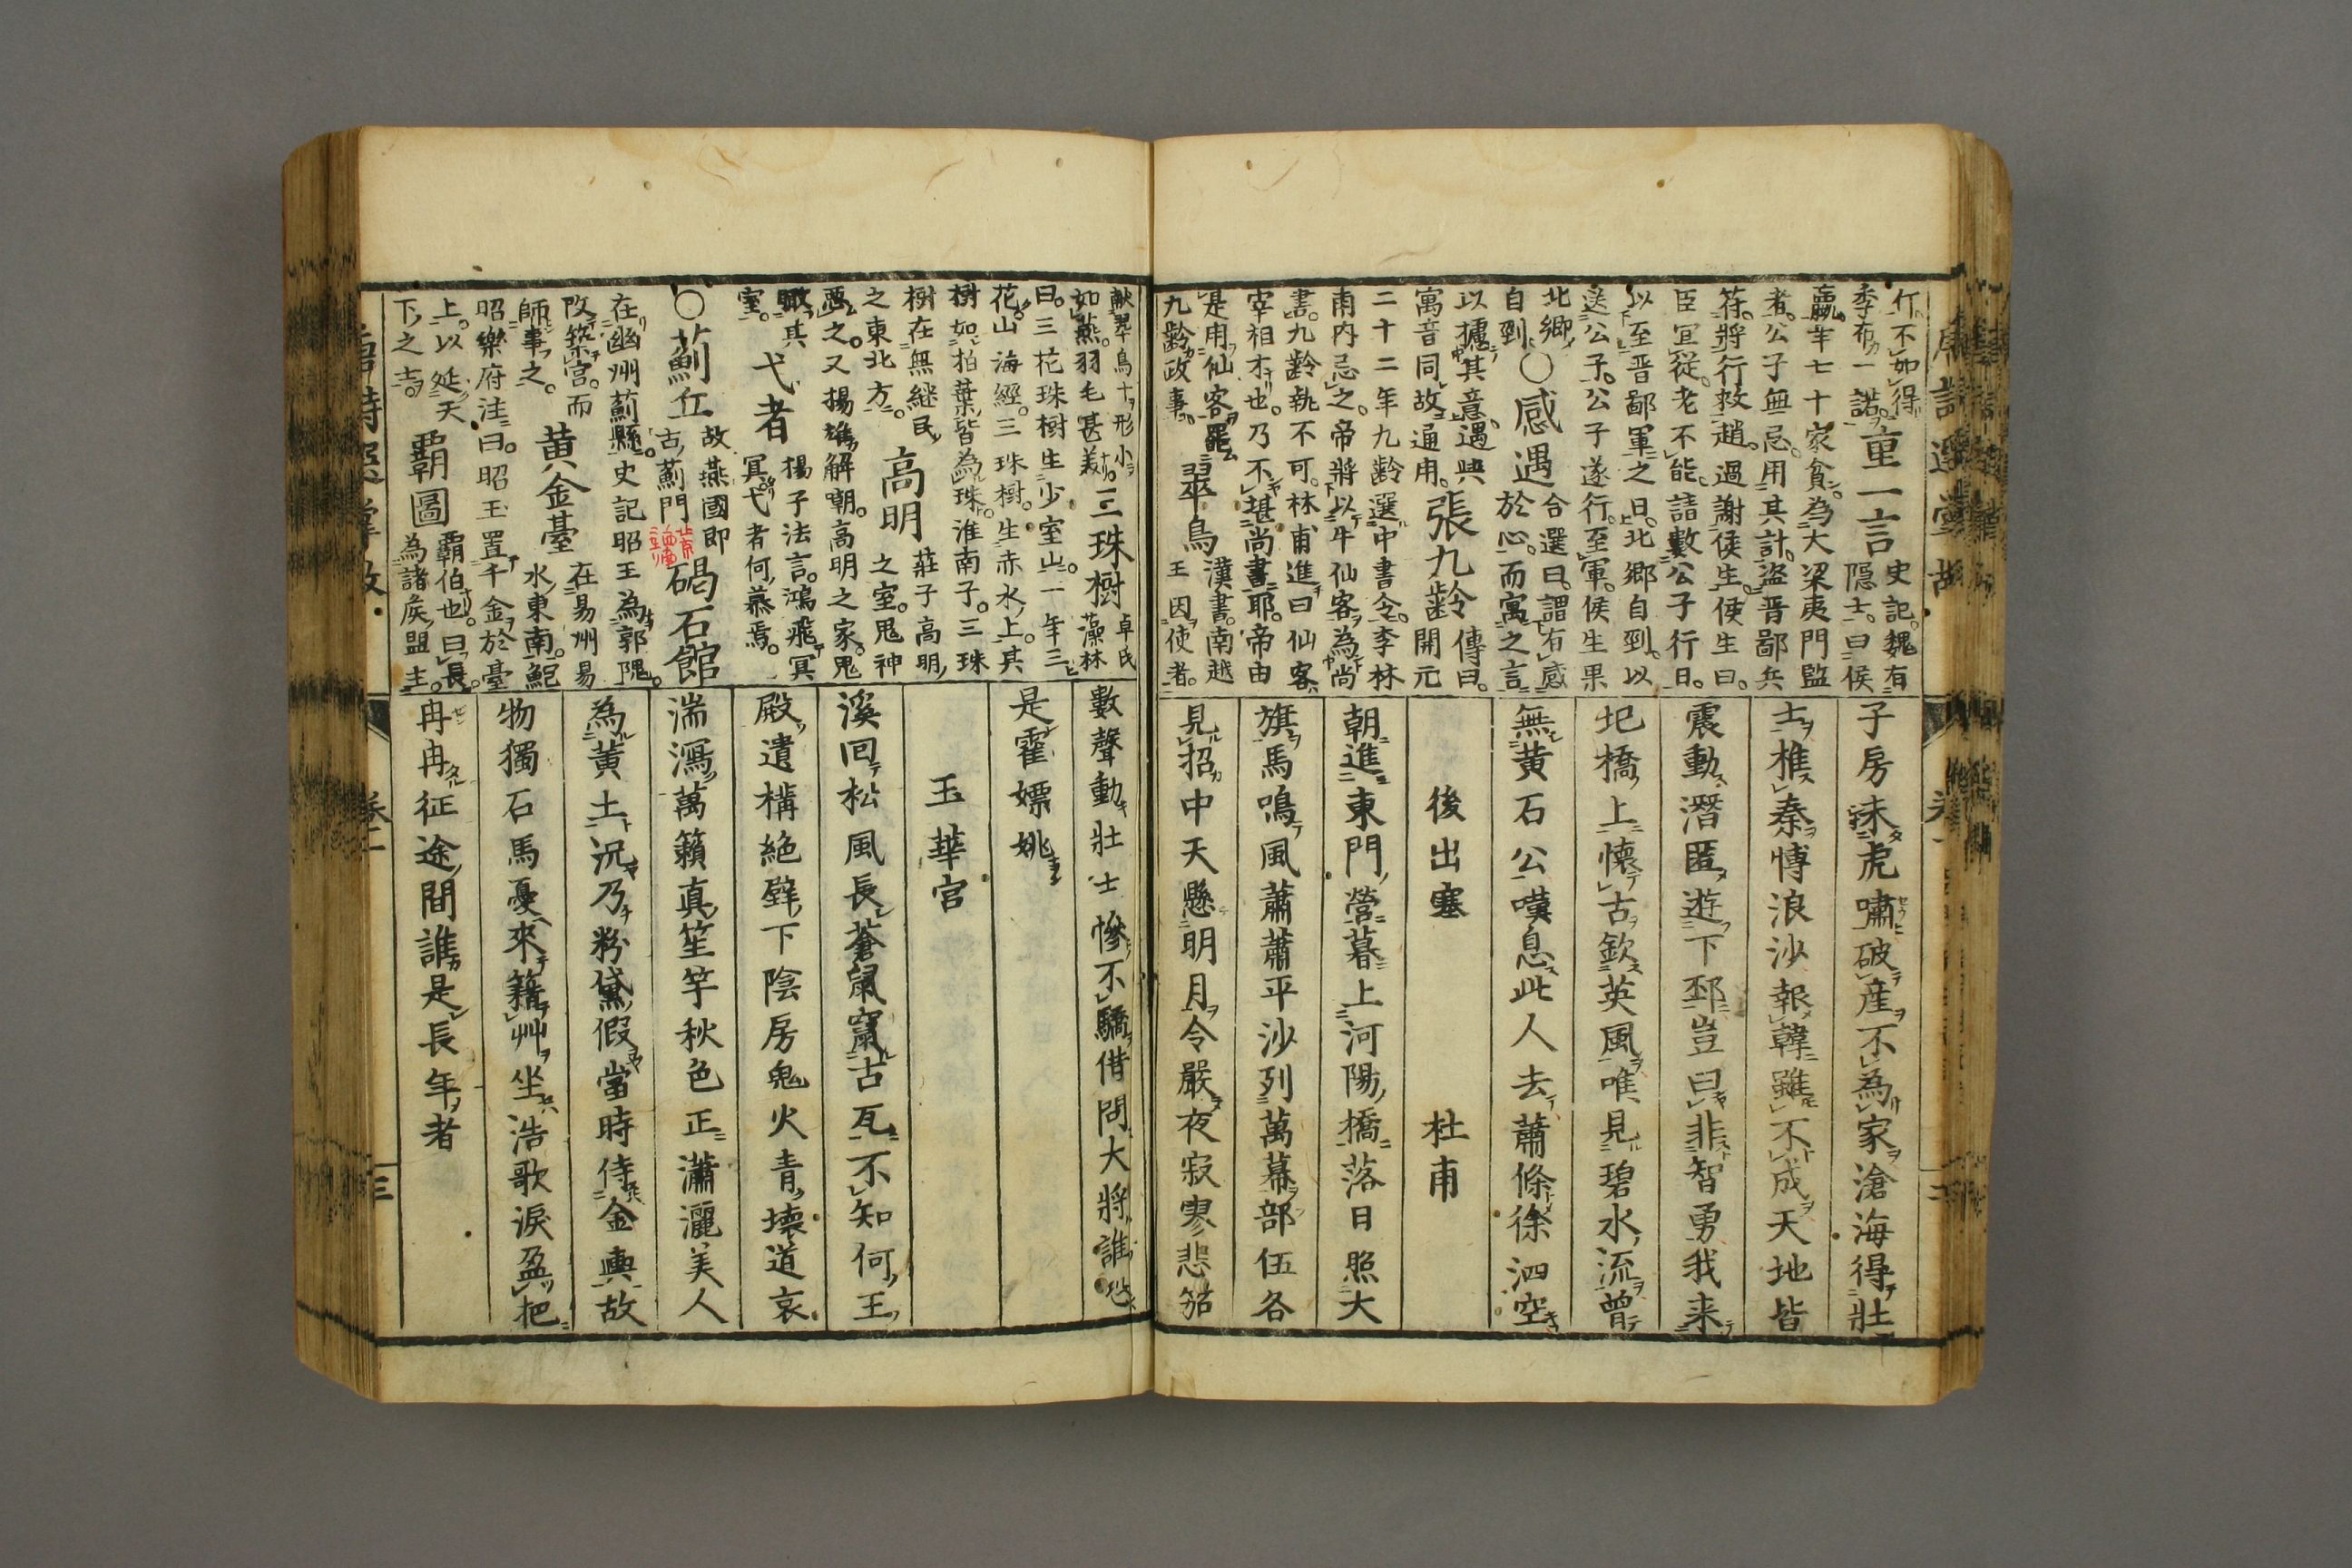 斤不如得
季布一諾
重一言
史記魏有
隠士曰侯
嬴年七十家貧為大梁夷門監
者公子無忌用其計盗晋鄙兵
符將行救趙過謝侯生侯生曰
臣宜従老不能請數公子行日
以至晋鄙軍之日北郷自剄以
送公子公子遂行至軍侯生果
北郷
自剄
○感遇
合選曰謂有感
於心而寓之言
以攄其意遇與
寓音同故通用
張九齢
傳曰
開元
二十二年九齢選中書令李林
甫内忌之帝將以牛仙客為尚
書九齢執不可林甫進曰仙客
宰相才也乃不堪尚書耶帝由
是用仙客罷
九齢政事
翠鳥
漢書南越
王因使者
子房未虎嘯破産不為家滄海得壯
士椎秦博浪沙報韓雖不成天地皆
震動潛匿遊下邳豈曰非智勇我来
圯橋上懐古欽英風唯見碧水流曽
無黄石公嘆息此人去蕭條徐泗空
後出塞　杜甫
朝進東門營暮上河陽橋落日照大
旗馬鳴風蕭蕭平沙列萬幕部伍各
見招中天懸明月令嚴夜寂寥悲笳
献翠鳥十形小
如燕羽毛甚美
三珠樹
卓氏
藻林
曰三花珠樹生少室山一年三
花山海經三珠樹生赤水上其
樹如柏葉皆為珠淮南子三珠
樹在無継民
之東北方
高明
莊子高明
之室鬼神
惡之又揚雄解嘲高明之家鬼
瞰其
室
弋者
揚子法言鴻飛冥
冥弋者何慕焉
○薊丘
故燕國即
古薊門
碣石館
在幽州薊縣史記昭王為郭隗
改築宮而
師事之
黄金臺
在易州易
水東南鮑
昭樂府注曰昭王置千金於臺
上以延天
下之士
覇圖
覇伯也曰長
為諸侯盟主
數聲動壯士慘不驕借問大將誰恐
是霍嫖姚
玉華宮
溪回松風長蒼鼠竄古瓦不知何王
殿遺構絶壁下陰房鬼火青壊道哀
湍瀉萬籟真笙竽秋色正瀟灑美人
為黄土況乃粉黛假當時侍金輿故
物獨石馬憂來籍艸坐浩歌涙盈把
冉冉征途間誰是長年者
三